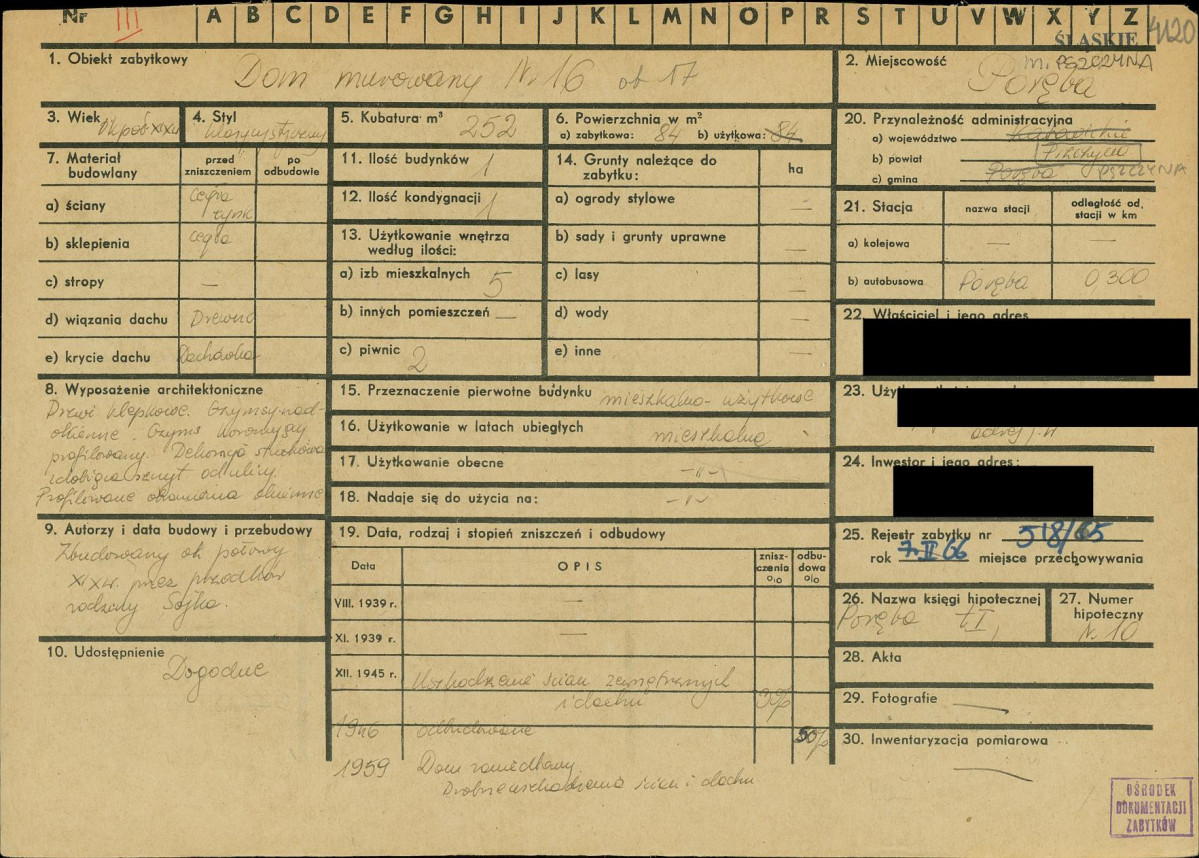 Nr III A B C D E F G H I J K L M N O P R S T U V W X Y Z 4120
ŚLĄSKIE
1. Obiekt zabytkowy
Dom murowany Nr 16 ob 17
2. Miejscowość
m. PSZCZYNA
Poręba
3. Wiek
II poł. XIX w
4. Styl
klasycystyczny
5. Kubatura m³
252
6. Powierzchnia w m²
a) zabytkowa: 84 b) użytkowa: 84
20. Przynależność administracyjna
a) województwo Katowickie
b) powiat Pszczyna
c) gmina Poręba PSZCZYNA
7. Materiał budowlany
przed zniszczeniem
po odbudowie
a) ściany
cegła
tynk
b) sklepienia cegła
c) stropy —
d) wiązania dachu Drewno
e) krycie dachu Dachówka
11. Ilość budynków 1
12. Ilość kondygnacji 1
13. Użytkowanie wnętrza
według ilości:
a) izb mieszkalnych 5
b) innych pomieszczeń —
c) piwnic 2
14. Grunty należące do
zabytku:
ha
a) ogrody stylowe —
b) sady i grunty uprawne —
c) lasy —
d) wody —
e) inne —
21. Stacja
nazwa stacji
odległość od
stacji w km
a) kolejowa — —
b) autobusowa Poręba 0,300
22. Właściciel i jego adres
8. Wyposażenie architektoniczne
Drzwi klepkowe. Gzymsy nad-
okienne. Gzyms koronujący
profilowany. Dekoracja stiukowa
zdobiąca szczyt od ulicy.
Profilowane obramienia okienne
15. Przeznaczenie pierwotne budynku mieszkalno-użytkowe
16. Użytkowanie w latach ubiegłych mieszkalne
17. Użytkowanie obecne -"-
18. Nadaje się do użycia na: -"-
23. Uży
24. Inwestor i jego adres:
9. Autorzy i data budowy i przebudowy
Zbudowany ok. połowy
XIX w. przez przodków
rodziny Sojka.
10. Udostępnienie
Dogodne
19. Data, rodzaj i stopień zniszczeń i odbudowy
Data
OPIS
znisz-
czenia
o/o
odbu-
dowa
o/o
VIII. 1939 r. —
XI. 1939 r. —
XII. 1945 r. Uszkodzenie ścian zewnętrznych
i dachu 30%
1946 odbudowane 50%
1959 Dom zaniedbany.
Drobne uszkodzenia ścian i dachu
25. Rejestr zabytku nr 518/65
rok 7.II 66 miejsce przechowywania
26. Nazwa księgi hipotecznej
Poręba t. I,
27. Numer
hipoteczny
Nr 10
28. Akta
29. Fotografie —
30. Inwentaryzacja pomiarowa
—
OŚRODEK
DOKUMENTACJI
ZABYTKÓW